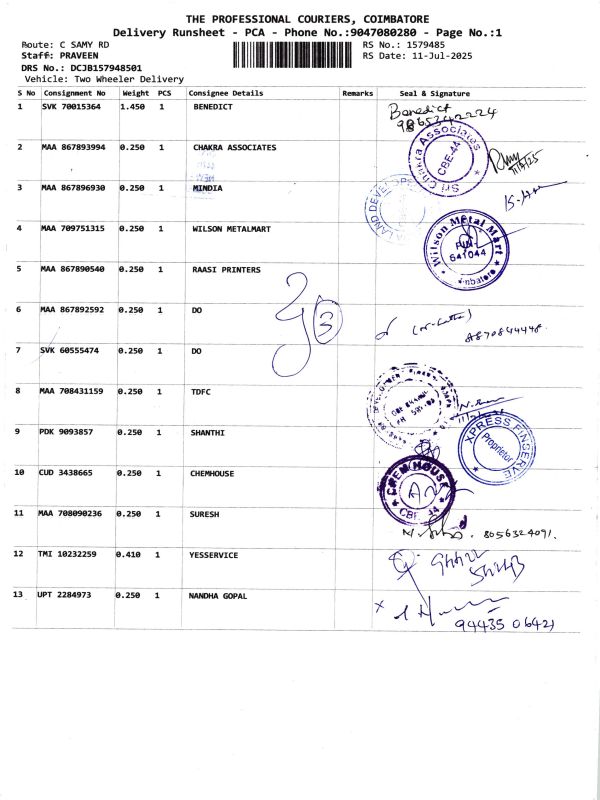 THE PROFESSIONAL COURIERS, COIMBATORE
Delivery Runsheet - PCA - Phone No.:9047080280 - Page No.:1
Route: C SAMY RD RS No.: 1579485
Staff: PRAVEEN RS Date: 11-Jul-2025
DRS No.: DCJB157948501
Vehicle: Two Wheeler Delivery
S No Consignment No Weight PCS Consignee Details Remarks Seal & Signature
1 SVK 70015364 1.450 1 BENEDICT Benedict
9865342224
2 MAA 867893994 0.250 1 CHAKRA ASSOCIATES Sri Chakra Associates CBE-44
3 MAA 867896930 0.250 1 MINDIA
4 MAA 709751315 0.250 1 WILSON METALMART Wilson Metal Mart 641044
5 MAA 867890540 0.250 1 RAASI PRINTERS
3
6 MAA 867892592 0.250 1 DO
7 SVK 60555474 0.250 1 DO
8 MAA 708431159 0.250 1 TDFC
9 PDK 9093857 0.250 1 SHANTHI XPRESS FINSERVE Proprietor
10 CUD 3438665 0.250 1 CHEMHOUSE CHEM HOUSE CBE-44
11 MAA 708090236 0.250 1 SURESH 8056324091.
12 TMI 10232259 0.410 1 YESSERVICE
13 UPT 2284973 0.250 1 NANDHA GOPAL
94435 06421